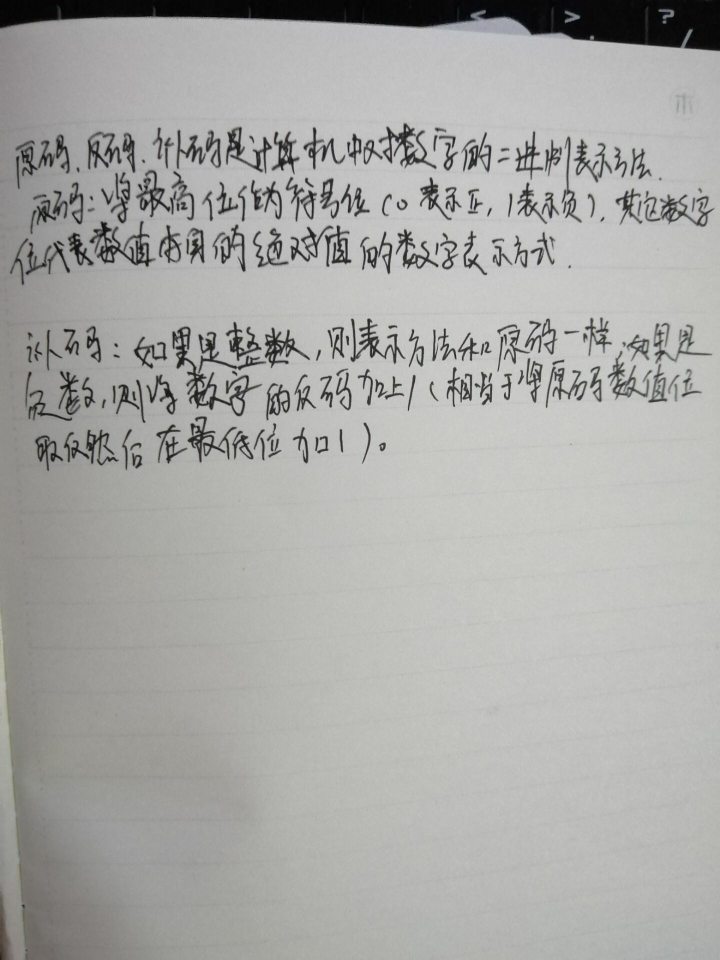 < > ?
/
原码、反码、补码是计算机中对数字的二进制表示方法.
原码：将最高位作为符号位（0表示正，1表示负），其它数字
位代表数值本身的绝对值的数字表示方式.
补码：如果是整数，则表示方法和原码一样；如果是
负数，则将数字的反码加上1（相当于将原码数值位
取反然后在最低位加1）。